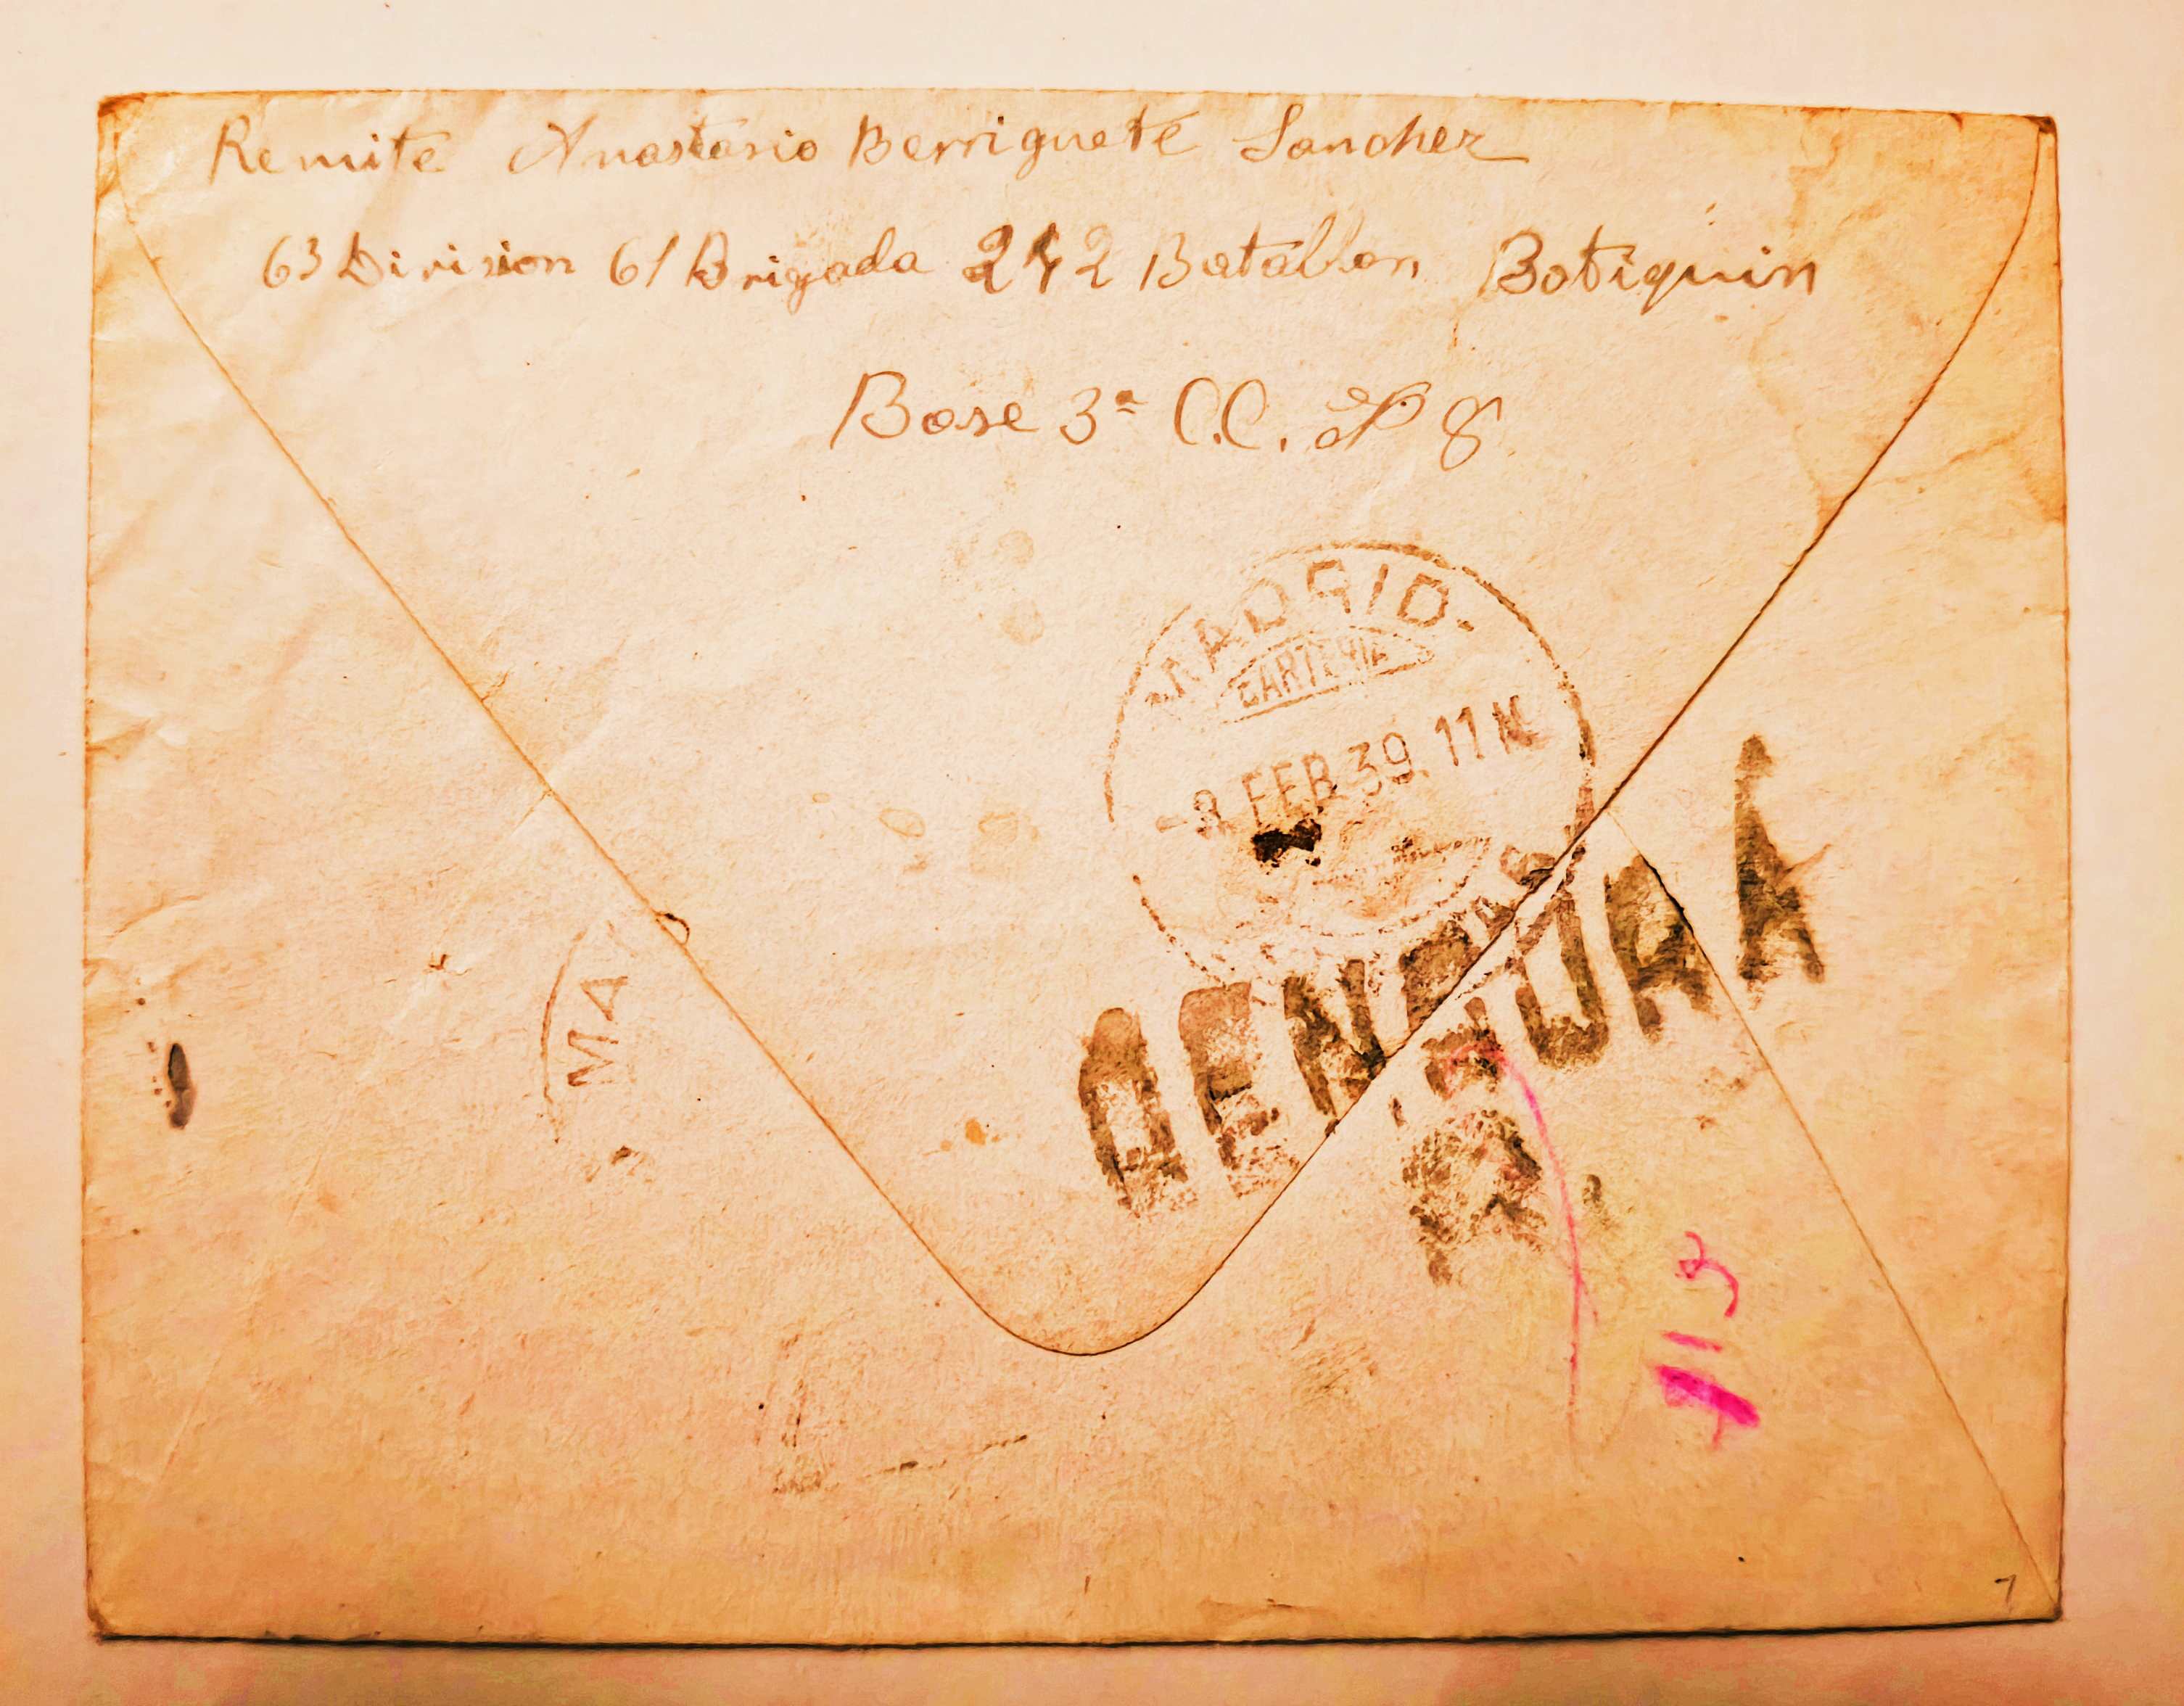 Remite Anastasio Berriguete Sanchez
63 Division 61 Brigada 242 Batallon Botiquin
Base 3ª C.C. Nº 8
MADRID.
CARTERIA
FEB 39. 11 M
CENSURA
MA
R.